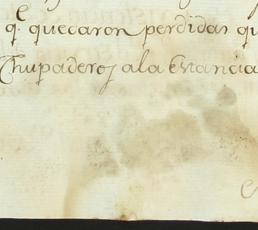 q.e quedaron perdidas qu
Chupaderos a la Estancia